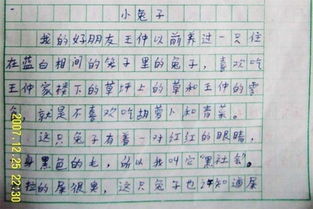 小兔子
我的好朋友王仲以前养过一只住
在蓝白相间的笼子里的兔子，喜欢吃
王仲家楼下的草坪上的草和王仲的零
食，就是不喜欢吃胡萝卜和青菜。
这只兔子有着一对红红的眼睛，
身黑色的毛，所以我叫它“黑社会”。
拉的屎很臭，这只兔子也许知道屎
2007.12.25 22:30